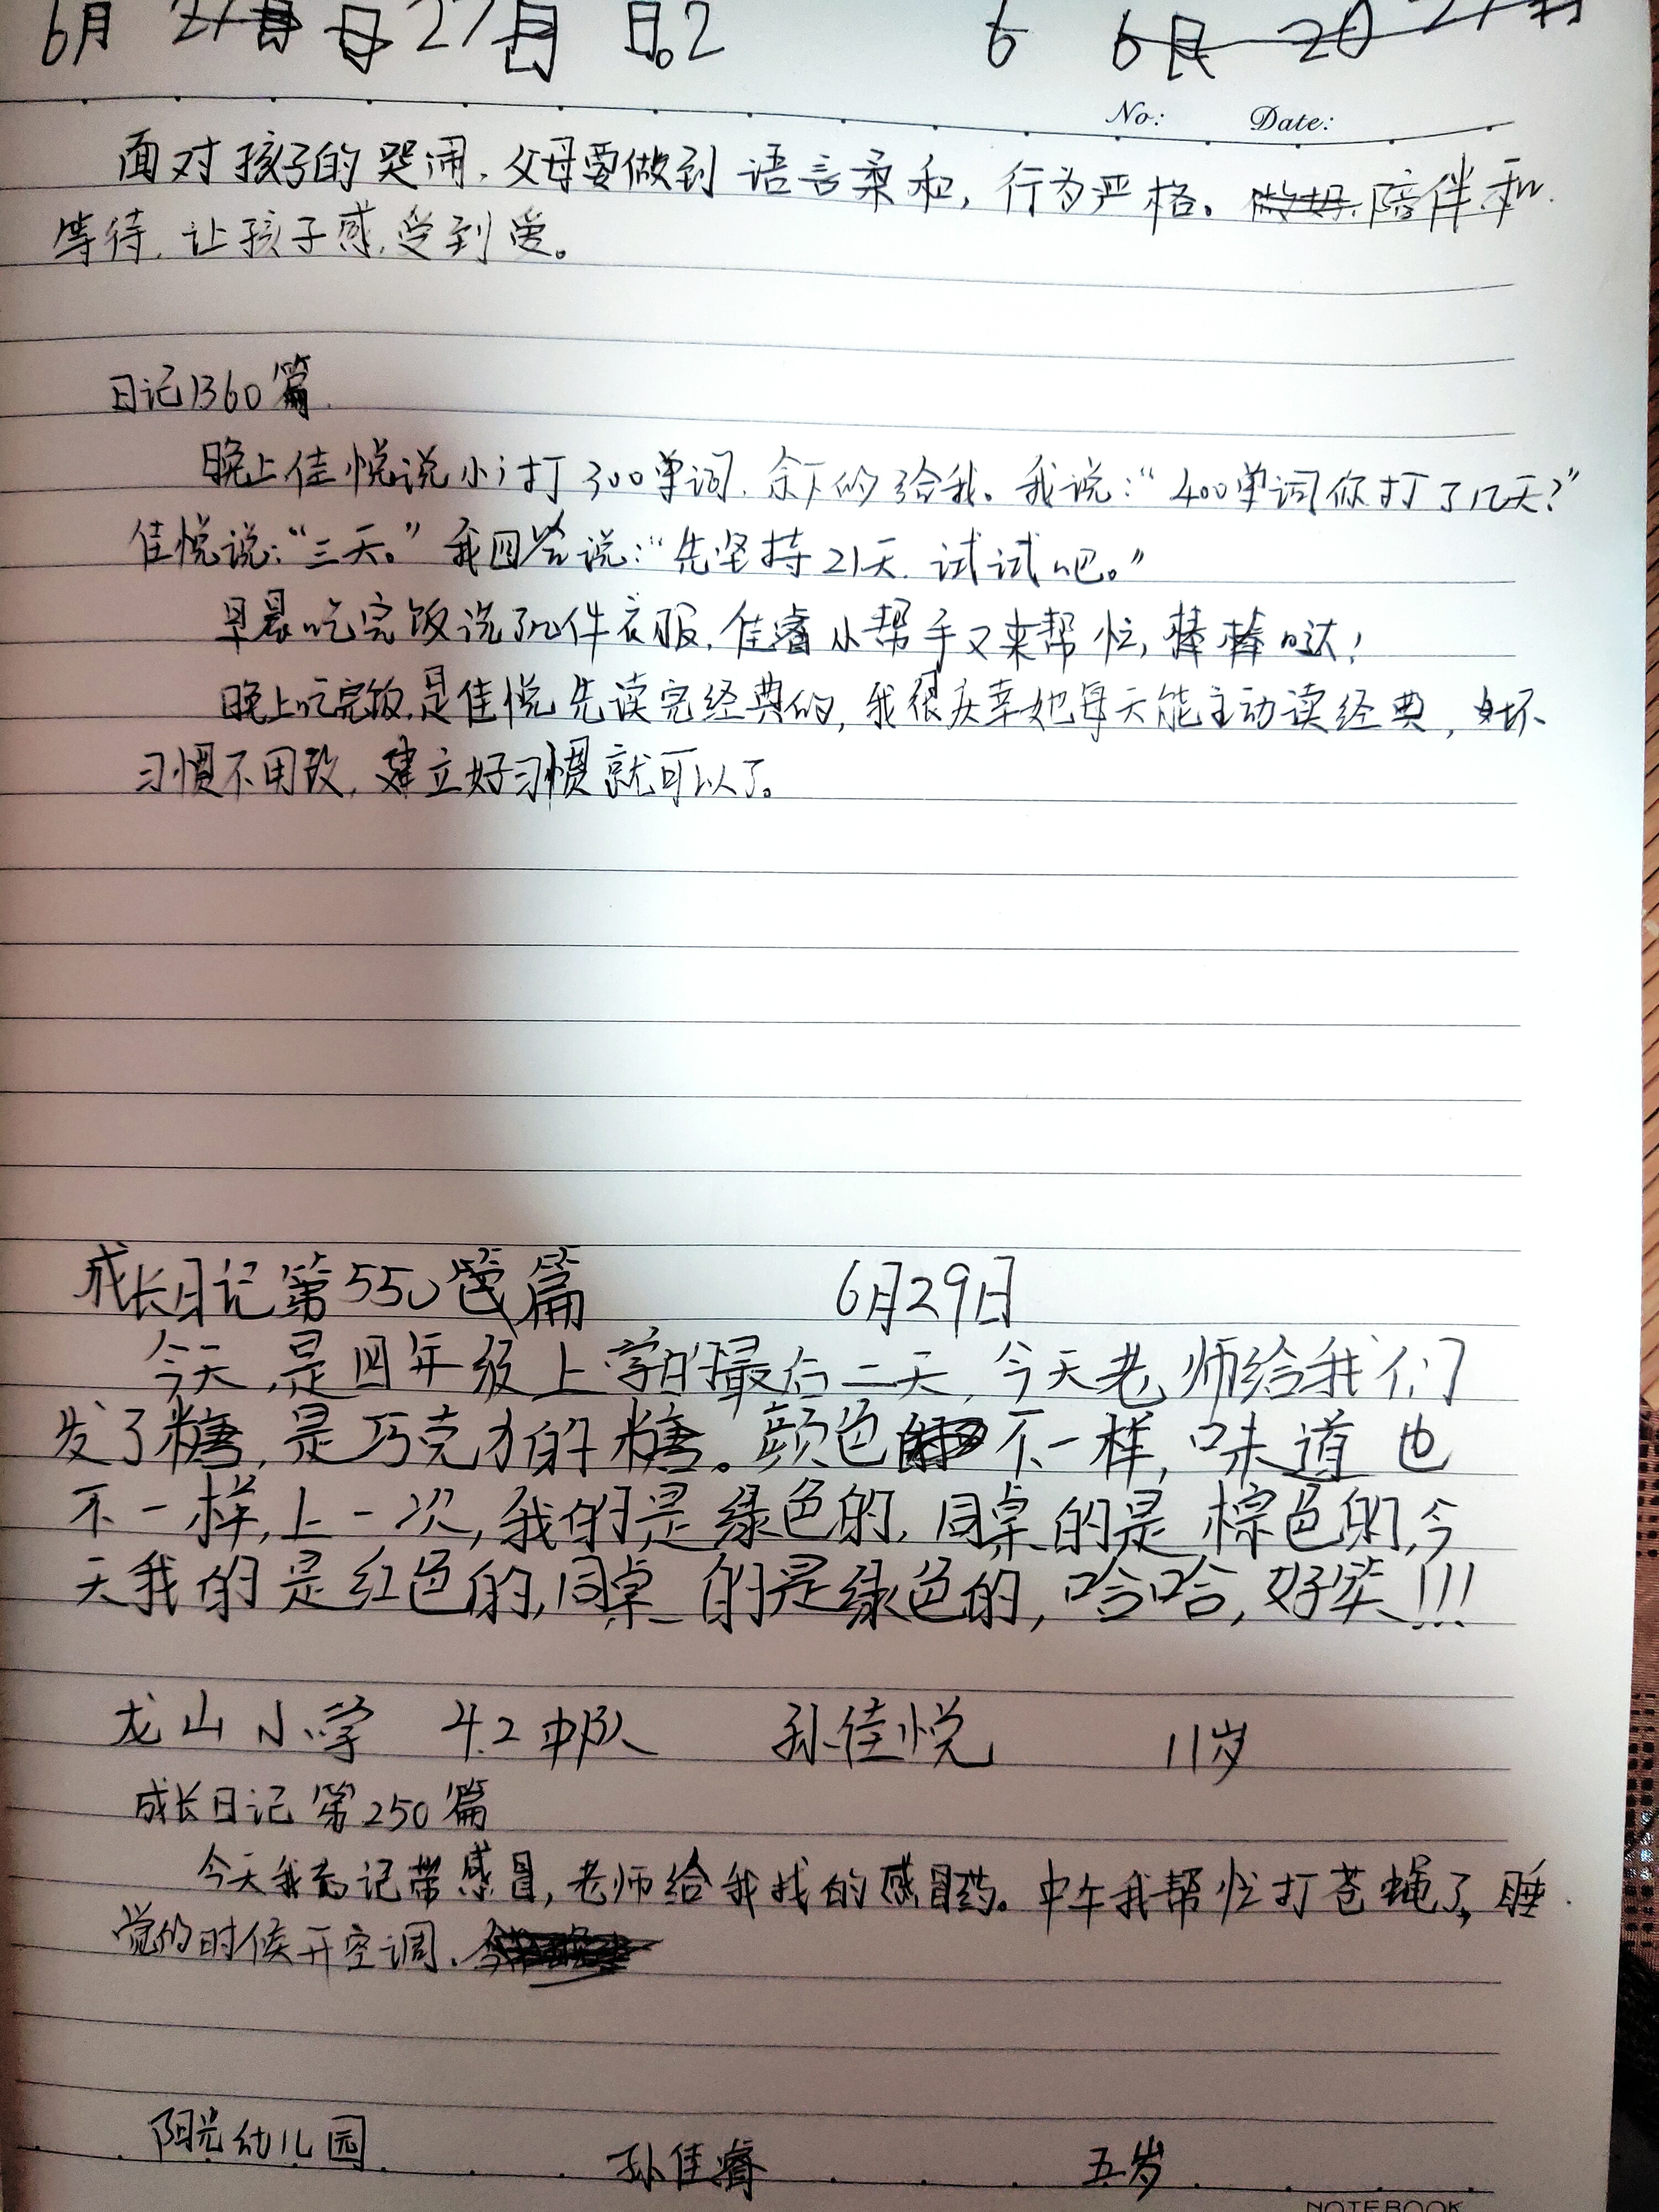 6月 27日 日.2 6 6民 20
No: Date:
面对孩子的哭闹,父母要做到语言柔和,行为严格。陪伴和
等待,让孩子感受到爱。
日记1360篇
晚上佳悦说小i打300单词,余下的给我。我说:“400单词你打了几天?”
佳悦说:“三天。”我回答说:“先坚持21天,试试吧。”
早晨吃完饭洗了几件衣服,佳睿小帮手又来帮忙,棒棒哒!
晚上吃完饭,是佳悦先读完经典的,我很庆幸她每天能主动读经典,坏
习惯不用改,建立好习惯就可以了。
成长日记第550篇 6月29日
今天,是四年级上学的最后二天,今天老师给我们
发了糖,是巧克力的糖。颜色不一样,味道也
不一样,上一次,我的是绿色的,同桌的是棕色的,今
天我的是红色的,同桌的是绿色的,哈哈,好笑!!!
龙山小学 4.2中队 孙佳悦 11岁
成长日记第250篇
今天我忘记带感冒,老师给我找的感冒药。中午我帮忙打苍蝇了,睡
觉的时候开空调、
阳光幼儿园 孙佳睿 五岁
NOTEBOOK